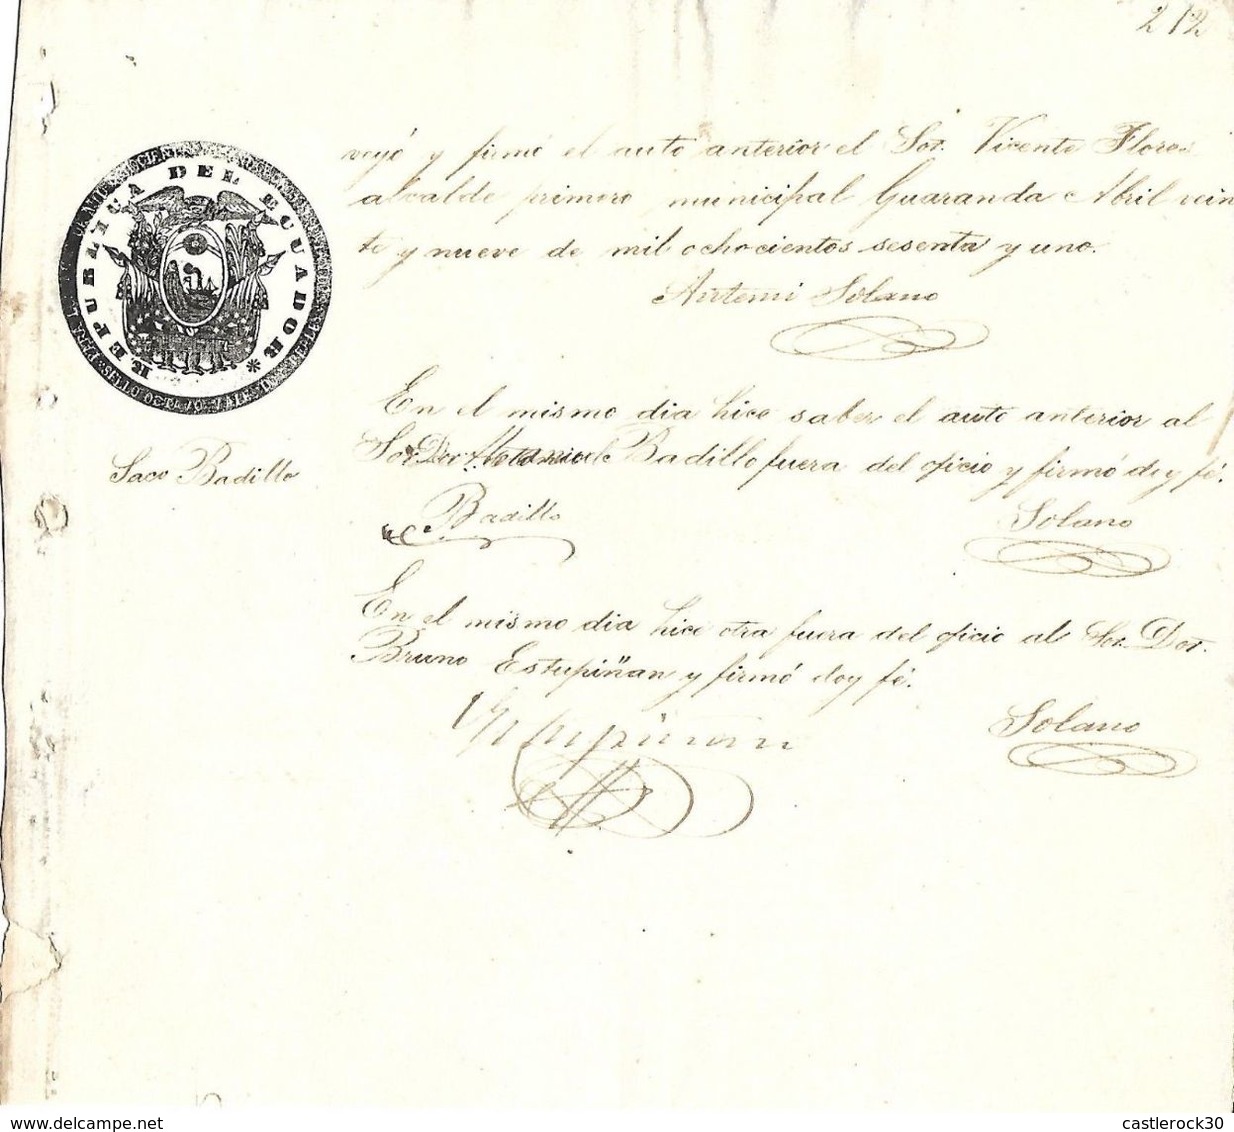 212
REPUBLICA DEL ECUADOR
SELLO OCTAVO VALE
veyó y firmó el auto anterior el Sor. Vicente Flores
alcalde primero municipal Guaranda Abril vein
te y nueve de mil ochocientos sesenta y uno.
Artemi Solano
En el mismo dia hice saber el auto anterior al
Sor Dor Badillo fuera del oficio y firmó doy fé.
Saco Badillo
Badillo
Solano
En el mismo dia hice otra fuera del oficio al Sor. Dor.
Bruno Estupiñan y firmó doy fé.
Estupiñan
Solano
www.delcampe.net
castlerock30